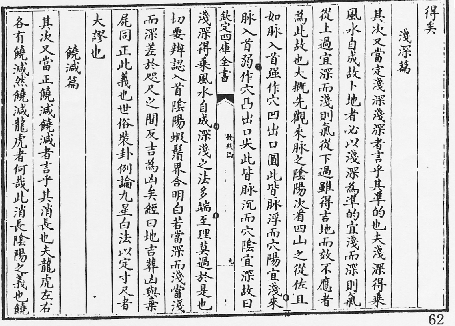 得矣
淺深篇
其次又當定淺深淺深者言乎其準的也夫淺深得乘
風水自成故卜地者必以淺深為準的宜淺而深則氣
從上過宜深而淺則氣從下過雖得吉地而效不應者
為此故也大概先觀來脈之陰陽次看四山之從佐且
如脈入首强作穴凹出口圓此皆脈浮而穴陽宜淺來
脈入首弱作穴凸出口尖此皆脈沉而穴陰宜深故曰
欽定四庫全書
發微論
淺深得乘風水自成深淺之法多端至理莫過於是也
切要辨認入首陰陽蝦鬚界合明白若當深而淺當淺
而深差於咫尺之間反吉為凶矣經曰地吉葬凶與棄
屍同正此義也世俗裝卦例論九星白法以定寸尺者
大謬也
饒減篇
其次又當正饒減饒減者言乎其消長也夫龍虎左右
各有饒減然饒減龍虎者何哉此消長陰陽之義也饒
62